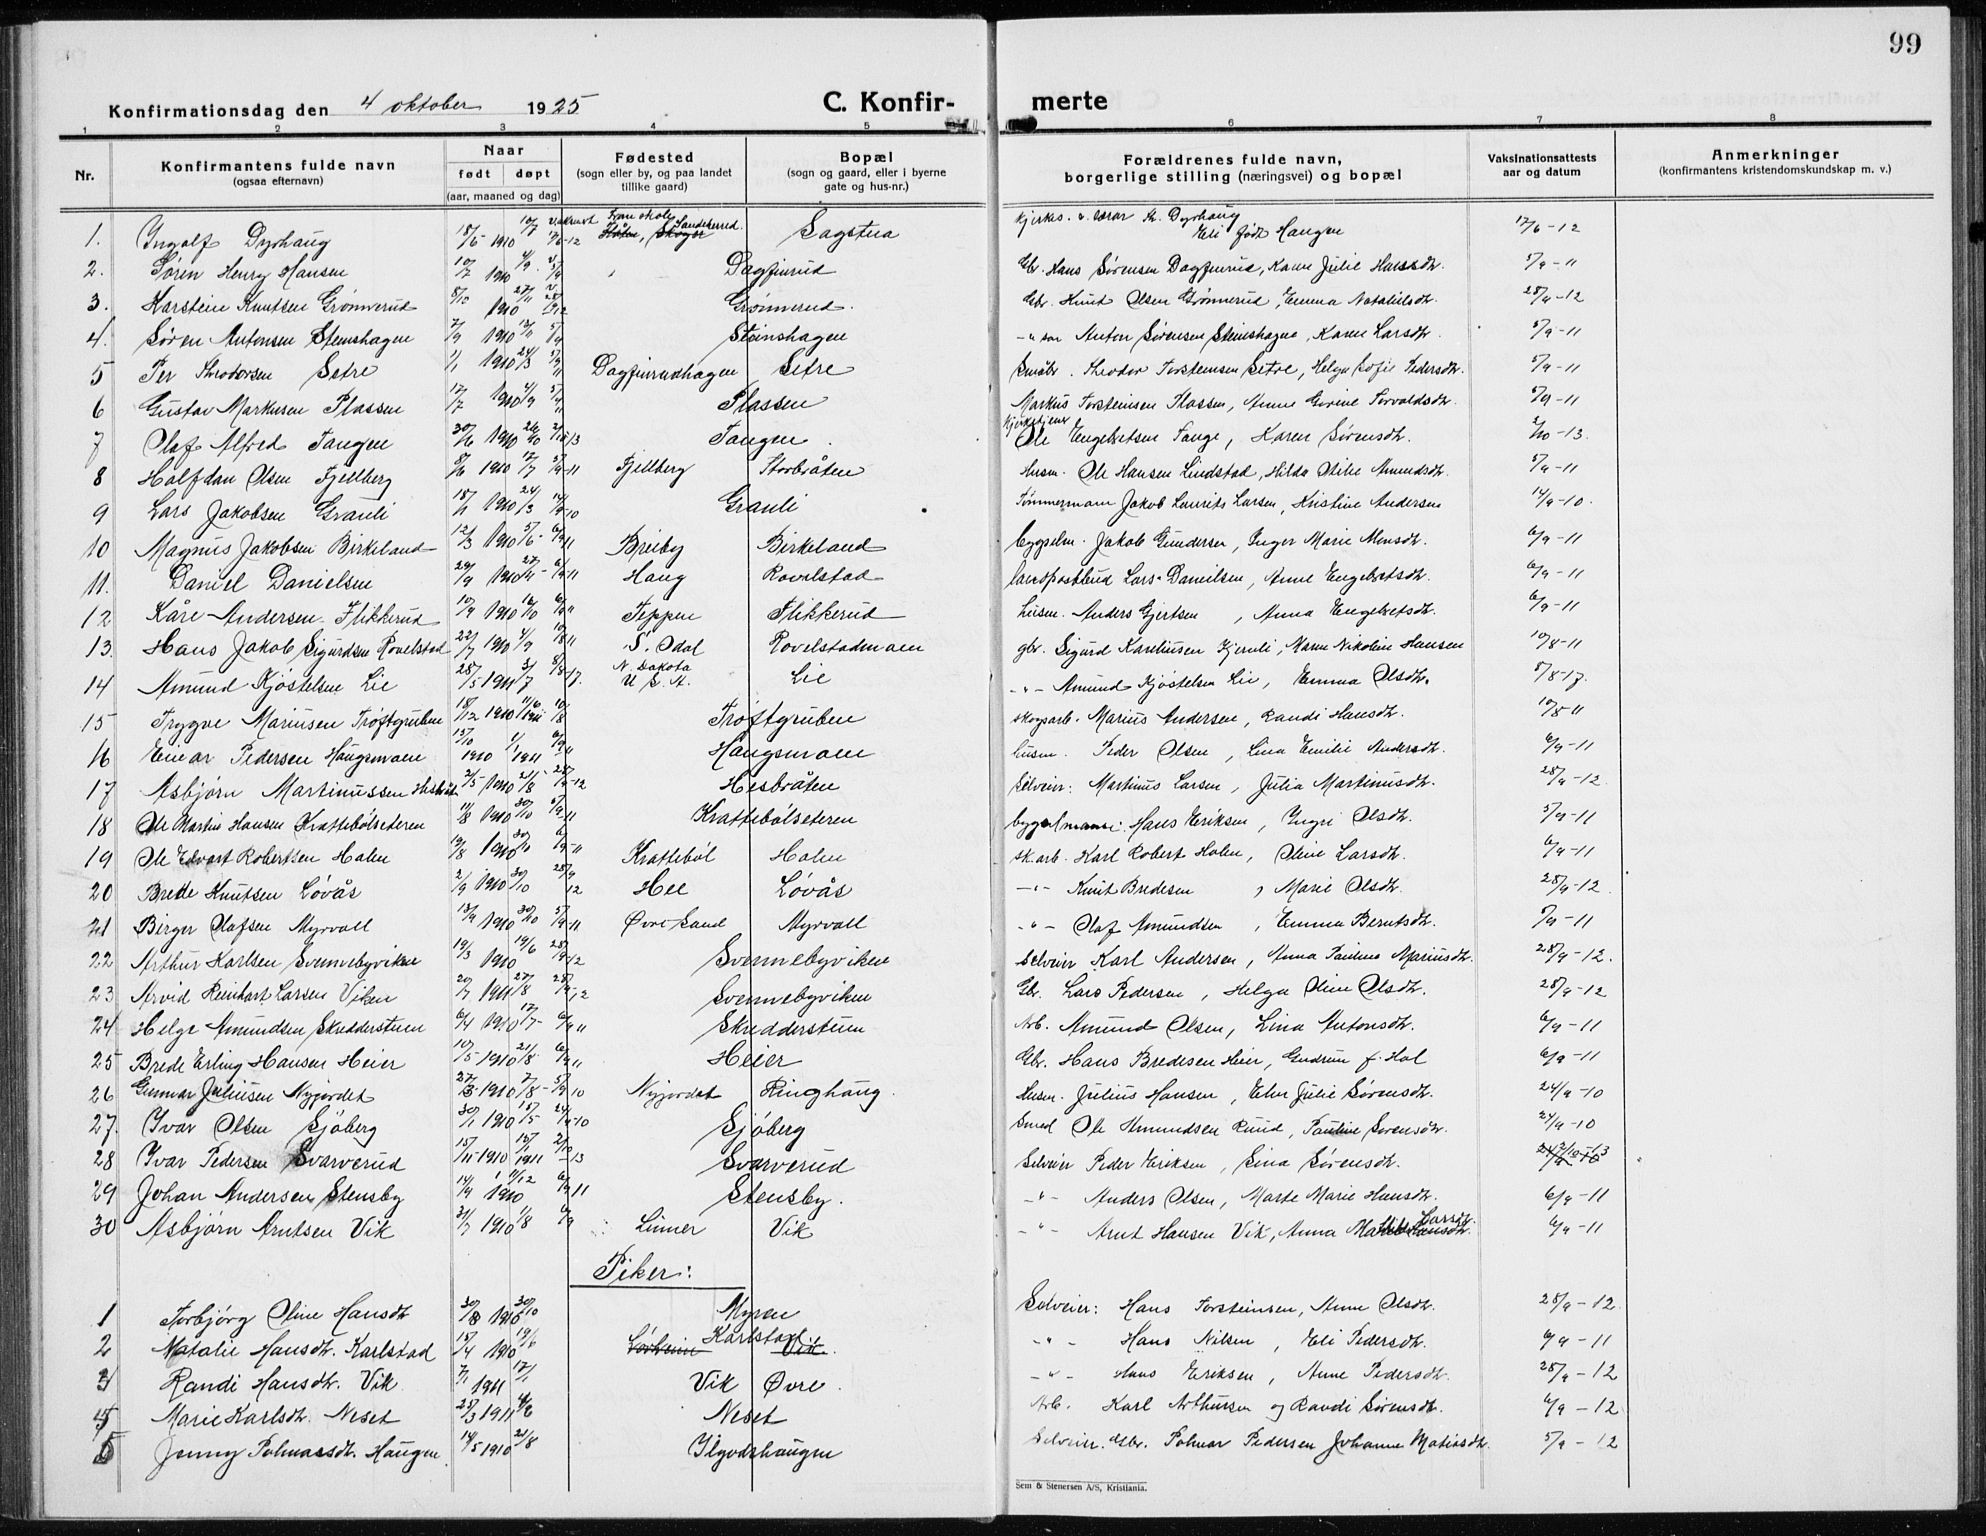 99
Konfirmationsdag den 4 oktober 1925 C. Konfir- merte
1 2 3 4 5 6 7 8
Nr. Konfirmantens fulde navn (ogsaa efternavn) Naar født døpt (aar, maaned og dag) Fødested (sogn eller by, og paa landet tillike gaard) Bopæl (sogn og gaard, eller i byerne gate og hus-nr.) Forældrenes fulde navn, borgerlige stilling (næringsvei) og bopæl Vaksinationsattests aar og datum Anmerkninger (konfirmantens kristendomskundskap m. v.)
1. Ingolf Dyrhaug 1910 Sagstua Dyrhaug Eli født Haugen 17/6-12
2. Søren Henry Hansen 10/7 1910 4/9 Dagfinrud Gbr. Hans Sørensen Dagfinrud, Karen Julie Hansdtr. 5/9-11
3. Karstein Knutsen Grønnerud 8/10 1910 27/11 Grønnerud. Gbr. Knut Olsen Grønnerud, Emma Natalielsdtr. 28/9-12
4. Søren Antonsen Stenshagen 7/9 1910 Steinshagen Anton Sørensen Steinshagen, Karen Larsdtr. 5/9-11
5 Per Theodorsen Setre 1/1 1910 24/3 Dagfinrudhagen Setre Småbr. Theodor Torsteinsen Setre, Helga Sofie Pedersdtr. 5/9-11
6 Gustav Markusen Plassen 17/7 1910 4/9 Plassen Markus Torsteinsen Plassen, Anne Gurine Torvaldsdtr. 5/9-11
7 Olaf Alfred Tangen 30/6 1910 Tangen. Kirketjener Ole Engebretsen Tange, Karen Sørensdtr. 2/10-13.
8 Halfdan Olsen Fjellberg 8/6 1910 17/7 5/9-11 Fjellberg Storbråten Husm. Ole Hansen Lindstad, Hilda Otilie Amundsdtr. 5/9-11
9 Lars Jakobsen Granli 18/1 1910 24/3 14/9-10 Granli Tømmermann Jakob Laurits Larsen, Kristine Andersen 14/9-10.
10 Magnus Jakobsen Birkeland 12/3 1910 5/6 6/9-11 Breiby Birkeland byggselm. Jakob Gundersen, Inger Marie Mensdtr. 6/9-11
11. Daniel Danielsen 29/9 1910 27/11 6/9-11 Haug Rovelstad landpostbud Lars Danielsen, Anne Engebretsdtr. 6/9-11
12 Kåre Andersen Flikkerud 10/9 1910 16/10 Teppen Flikkerud husm. Anders Gjertsen, Anna Engebretsdtr. 6/9-11
13. Hans Jakob Sigurdsen Rovelstad 22/7 1910 4/9 10/8 11 S. Odal Rovelstadmoen gbr. Sigurd Karelinsen Kjernli, Maren Nikoline Hansen 10/8-11
14 Amund Kjøstelsen Lie 28/5 1911 3/7 8/8-17. N. Dakota U. S. A. Lie -"- Amund Kjøstelsen Lie, Emma Olsdtr. 8/8-17.
15 Trygve Mariusen Trøftgruben 18/12 1910 1911 10/8 Trøftgruben skogsarb. Marius Andersen, Randi Hansdtr. 10/8 11
16 Einar Pedersen Haugsmoen 13/10 1910 1/1 1911 6/9 11 Haugsmoen husm. Peder Olsen, Lina Emilie Andersdtr. 6/9-11
17 Asbjørn Martinussen Hesbråten 2/5 1910 21/8 28/9-12 Hesbråten Selveier: Martinus Larsen, Julia Martinusdtr. 28/9-12.
18 Ole Martin Hansen Krattebølseteren 11/8 1910 30/10 5/9-11 Krattebølseteren byggselmann: Hans Eriksen, Ingri Olsdtr. 5/9-11
19 Ole Edvart Robertsen Holen 19/8 1910 30/10 6/9-11 Krattebøl Holen sk.arb. Karl Robert Holen, Oline Larsdtr. 6/9-11
20 Brede Knutsen Løvås 2/9 1910 30/10 28/9 12 Hee Løvås -"- Knut Bredesen, Marie Olsdtr. 28/9-12.
21 Birger Olafsen Myrvoll 13/9 1910 30/10 5/9-11 Øvre Sand Myrvoll -"- Olaf Amundsen, Emma Berntsdtr. 5/9-11
22 Arthur Karlsen Svennebyviken 19/3 1910 19/6 28/9-12 Svennebyviken Selveier Karl Andersen, Anna Pauline Mariusdtr. 28/9-12.
23 Arvid Reinhart Larsen Viken 20/7 1911 27/8 28/9-12 Svennebyviken Gbr. Lars Pedersen, Helga Oline Olsdtr. 28/9-12
24 Helge Amundsen Skredderstuen 6/4 1910 17/7 6/9 11 Skredderstuen Arb. Amund Olsen, Lina Antonsdtr. 6/9-11
25 Brede Erling Hansen Heier 10/5 1910 21/8 6/9 11 Heier Gbr. Hans Bredesen Heier, Gudrun f. Hol 6/9-11
26 Gunnar Juliusen Nyjordet 27/3 1910 7/8 Nyjordet Ringhaug Husm. Julius Hansen, Elen Julie Sørensdtr. 24/9-10
27. Ivar Olsen Sjøberg 30/1 1910 15/5 24/9-10 Sjøberg Smed Ole Amundsen Ruud, Pauline Sørensdtr. 24/9-10
28 Ivar Pedersen Svarverud 15/11 1910 15/1 1911 2/10-13 Svarverud Selveier Peder Eriksen, Sina Sørensdtr. 2/10-13
29 Johan Andersen Stensby 14/9 1910 11/12 6/9 11 Stensby. -"- Anders Olsen, Marte Marie Hansdtr. 6/9-11
30 Asbjørn Arntsen Vik 31/7 1910 6/9 Linner Vik -"- Arnt Hansen Vik, Anna Larsdtr. 6/9-11
Piker:
1 Torbjørg Oline Hansdtr 30/8 1910 30/10 Myren Selveier: Hans Torsteinsen, Anne Olsdtr. 28/9-12.
2 Natalie Hansdtr. Karlstad 15/4 1910 19/6 Karlstad Vik. -"- Hans Nilsen, Eli Pedersdtr. 6/9-11
3 Randi Hansdtr. Vik 7/1 1911 17/1 Vik Øvre. -"- Hans Eriksen, Anne Pedersdtr. 28/9-12
4 Marie Karlsdtr. Neset 28/3 1911 4/6 Neset Arb. Karl Arthursen og Randi Sørensdtr. 6/9-12
5 Jenny Polmarsdtr. Haugen 14/5 1910 21/8 Ilgodshaugen Selveier. Gbr. Polmar Pedersen Johanne Matiasdtr. 5/9-12
Sem & Stenersen A/S, Kristiania.